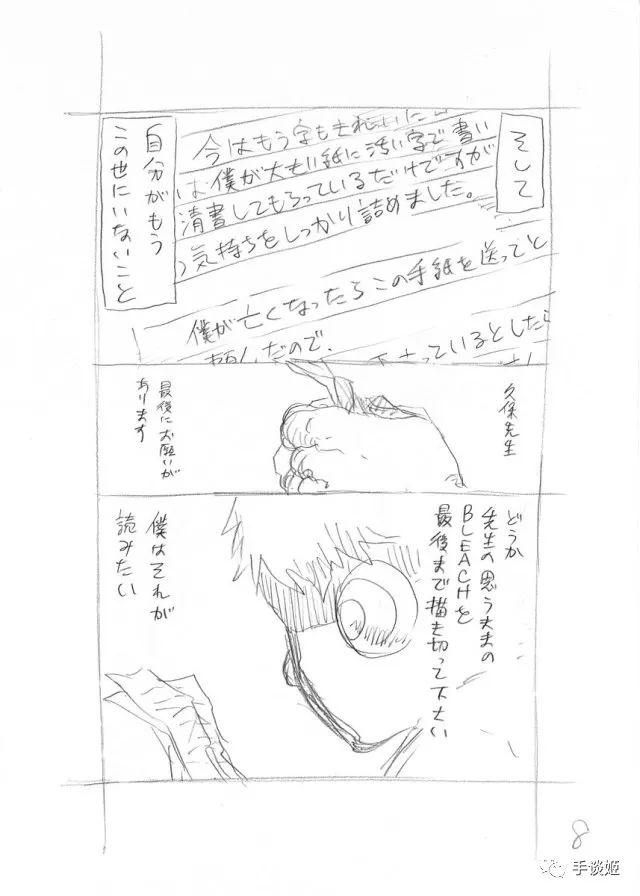 そして
今はもう字もきれいに
は僕が大きい紙に汚い字で書い
清書してもらっているだけですが
気持ちをしっかり詰めました。
僕が亡くなったらこの手紙を送ってと
頼んだので、
さっているとした
自分がもう
この世にいないこと
久保先生
最後にお願いが
あります
どうか
先生の思うままの
BLEACHを
最後まで描き切って下さい
僕はそれが
読みたい
8
手谈姬